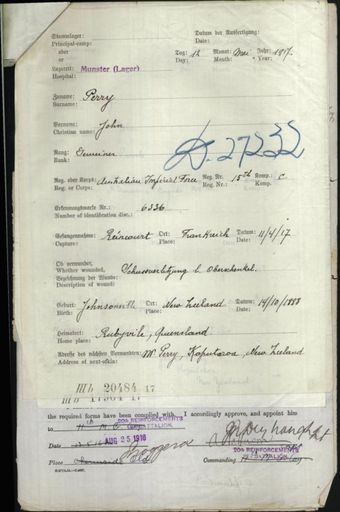 Stammlager: Datum der Ausfertigung:
Principal-camp: Date:
aber
or Tag: 12 Monat: Mai Jahr: 1917.
Lazarett: Munster (Lager) Day: Month: Year:
Hospital:
Zuname: Perry
Surname:
Vorname: John
Christian name:
Rang: Gemeiner D. 27232
Rank:
Reg. oder Korps: Australian Imperial Force Reg. Nr.: 15th Komp. C
Reg. or Corps: Reg. Nr.: Komp.
Erkennungsmarke Nr.: 6336
Number of identification disc.:
Gefangennahme: Réncourt Ort: Frankreich Datum: 11/4/17
Capture: Place: Date:
Ob verwundet,
Whether wounded, Schussverletzung l. Oberschenkel.
Bezeichnung der Wunde:
Description of wound)
Geburt: Johnsonville Ort: New Zeeland Datum: 14/10/1888
Birth: Place: Date:
Heimatsort: Rubyvile, Queensland
Home place:
Adresse des nächsten Verwandten: W. Perry, Kaputaroa, New Zeeland
Address of next-of-kin:
MB 20484 17
the required forms have been complied with. I accordingly approve, and appoint him
to REINFORCEMENTS
BATTALION.
Date AUG 25 1916
REINFORCEMENTS
Place Commanding